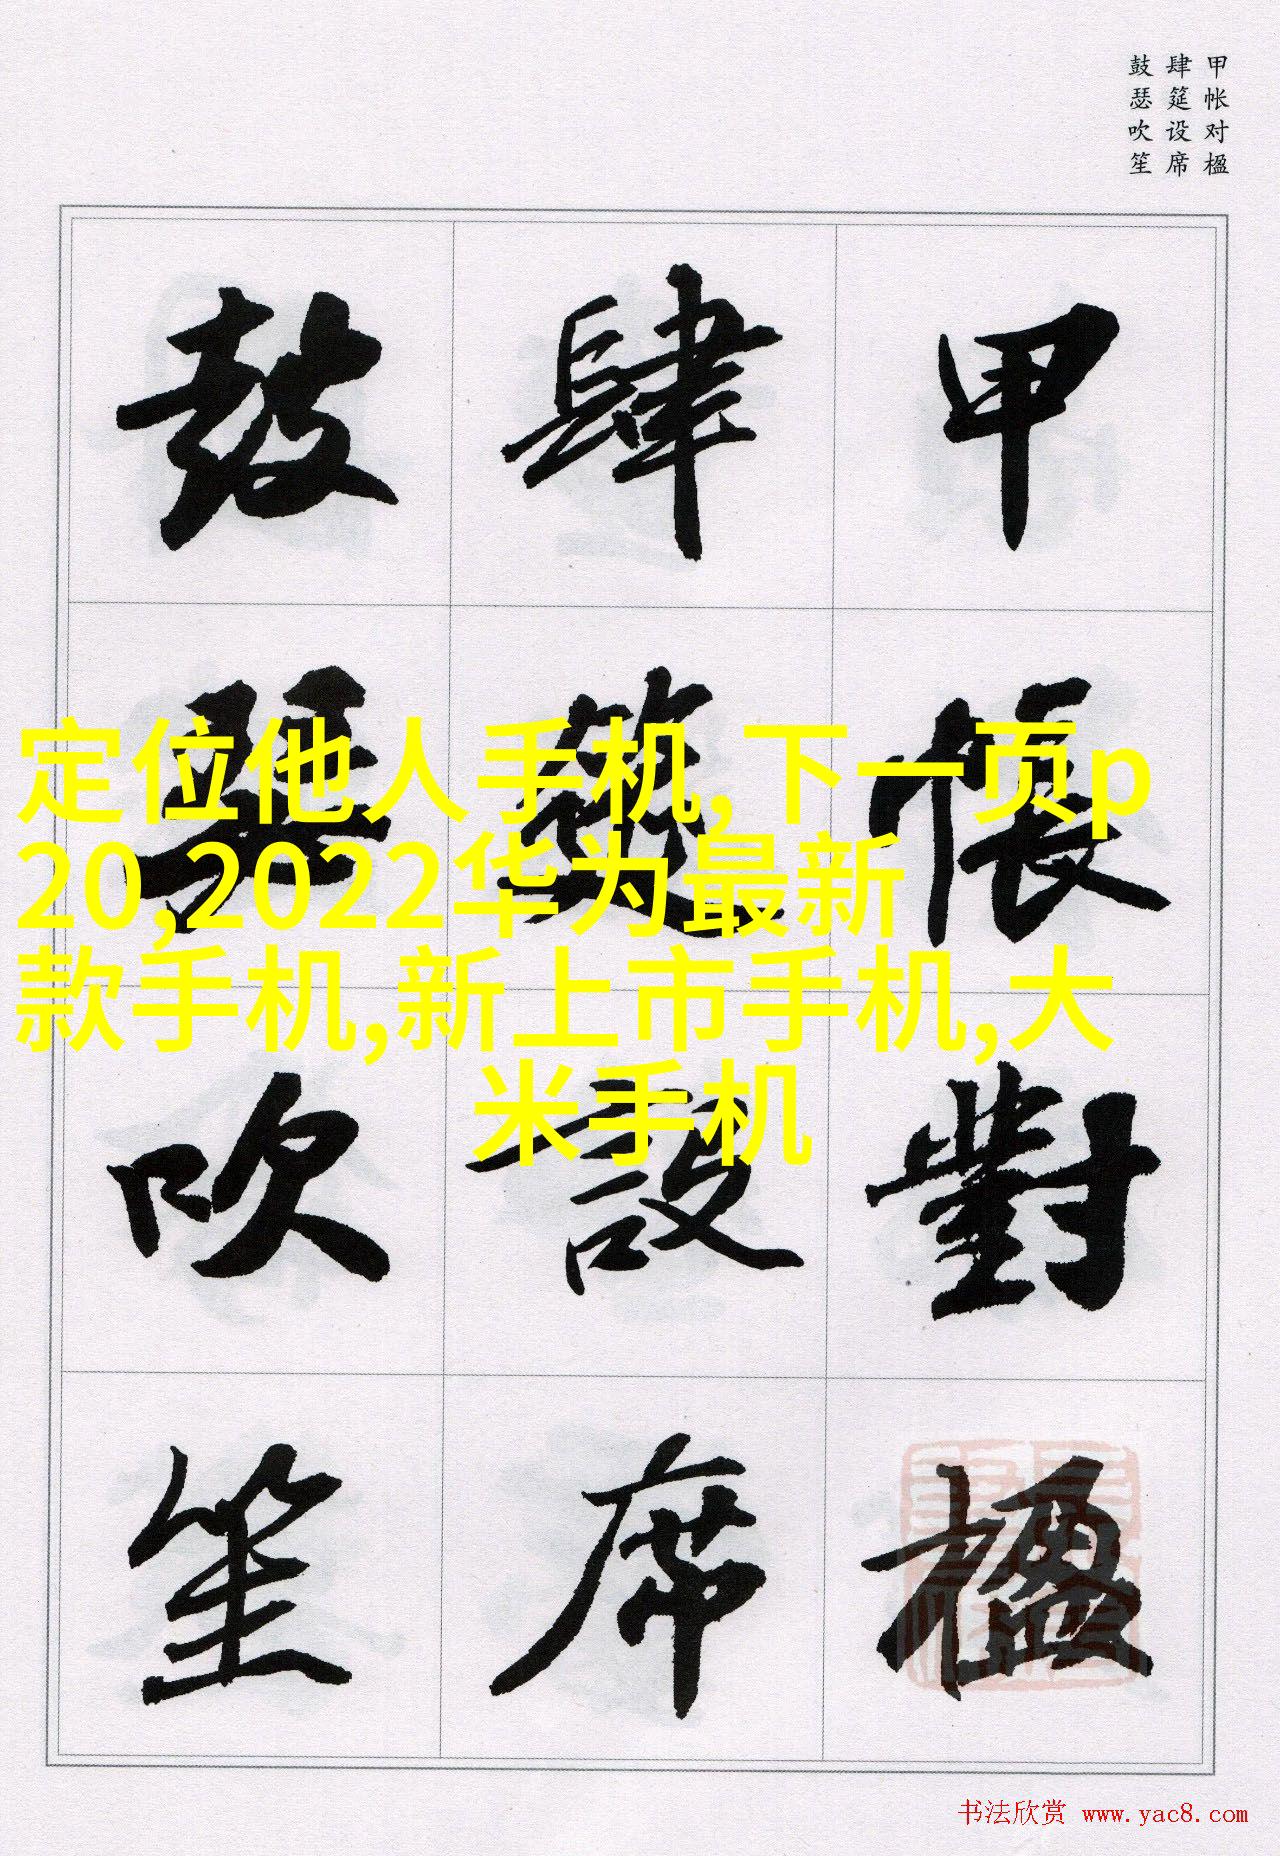 甲帐对楹
肆筵设席
鼓瑟吹笙
甲帳對楹
肆筵設席
鼓瑟吹笙
定位他人手机,下一页p
20,2022华为最新
款手机,新上市手机,大
米手机
书法欣赏 www.yac8.com